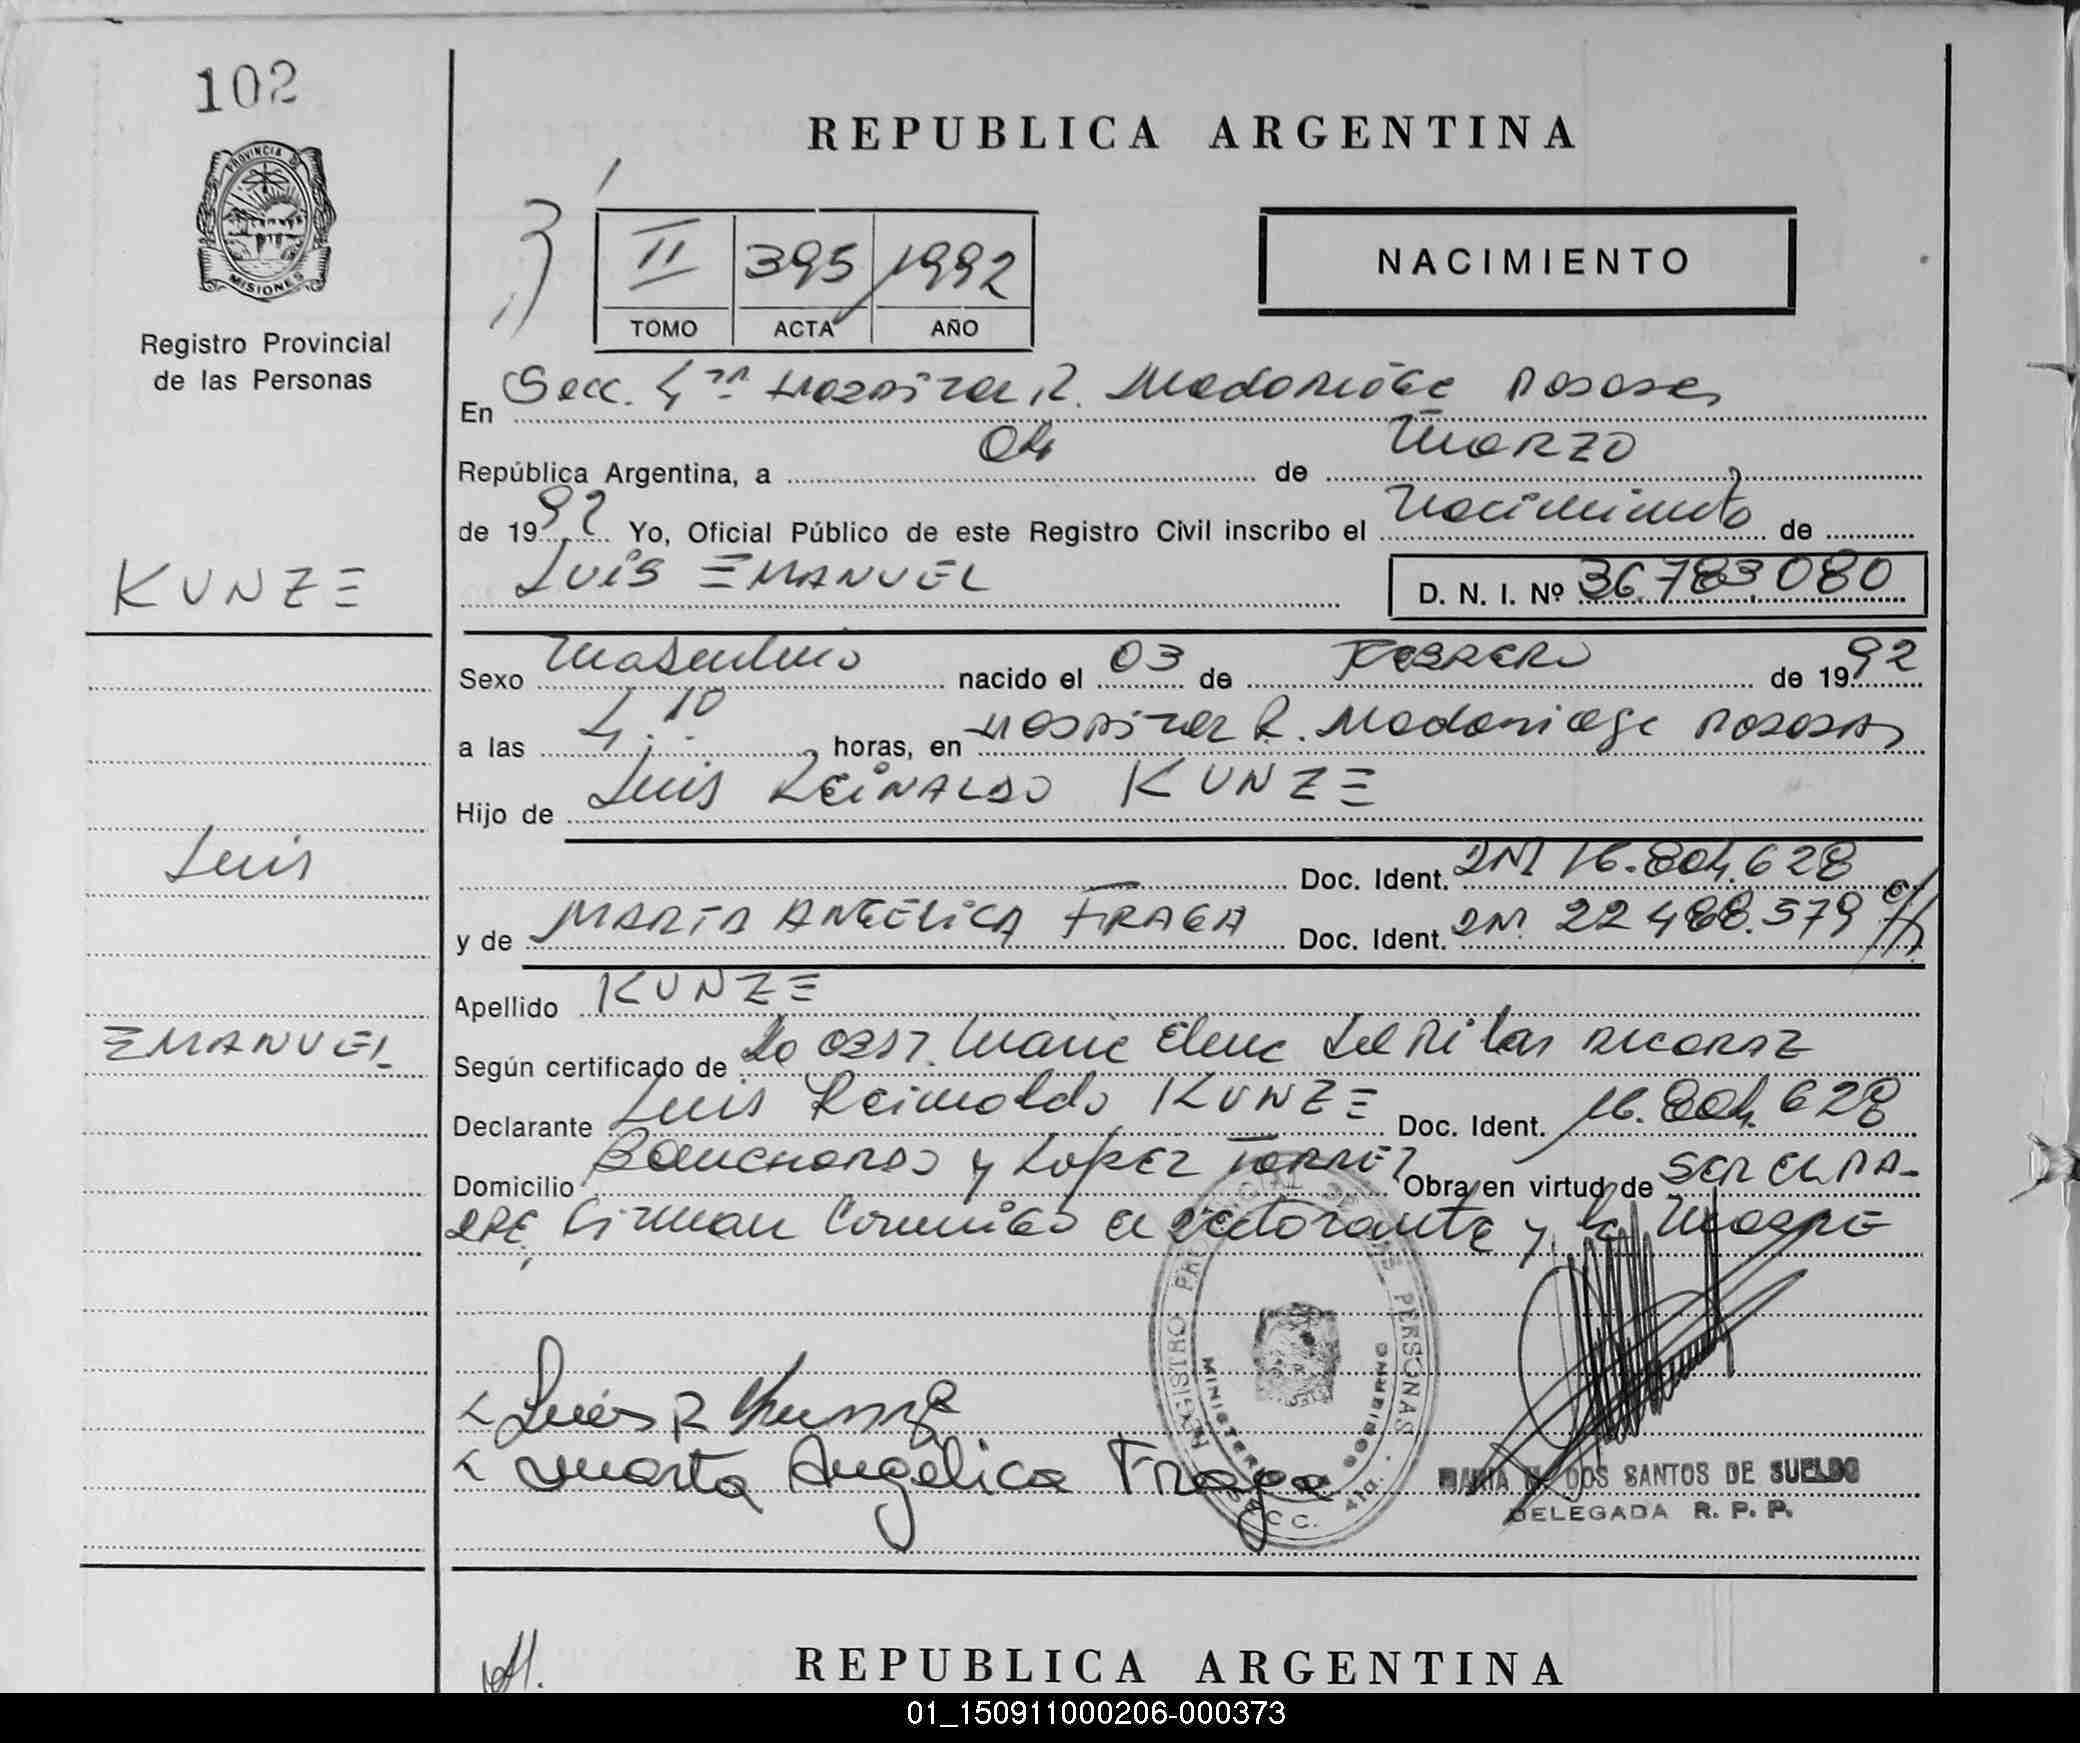 102
REPUBLICA ARGENTINA
PROVINCIA DE
MISIONES
Registro Provincial
de las Personas
II 395 1992
TOMO ACTA AÑO
NACIMIENTO
En Secc. 4ta Hospital R. Madariaga Posadas
República Argentina, a 04 de Marzo
de 1992 Yo, Oficial Público de este Registro Civil inscribo el Nacimiento de
LUIS EMANUEL D. N. I. Nº 36.783.080
KUNZE
Sexo Masculino nacido el 03 de FEBRERO de 1992
a las 4:10 horas, en Hospital R. Madariaga Posadas
Hijo de Luis REINALDO KUNZE
Luis
Doc. Ident. DNI 16.804.628
y de MARTA ANGELICA FRAGA Doc. Ident. DNI 22 488.579
Apellido KUNZE
EMANUEL
Según certificado de La Obst. Maria Elena del Pilar
Declarante Luis Reinaldo KUNZE Doc. Ident. 16.804.628
Domicilio y Lopez TORRES Obra en virtud de SER EL PA-
DRE, Firman Conmigo el declarante y la Madre
Luis R Kunze
Marta Angélica Fraga
REGISTRO PROVINCIAL DE LAS PERSONAS
MINISTERIO GOBIERNO
SECC. 4ta.
DOS SANTOS DE SUELDO
DELEGADA R. P. P.
REPUBLICA ARGENTINA
01_150911000206-000373